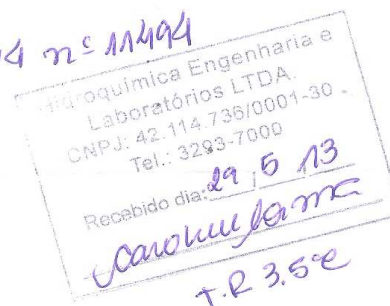 4 nº 11494
Hidroquímica Engenharia e
Laboratórios LTDA.
CNPJ: 42.114.736/0001-30 -
Tel.: 3293-7000
Recebido dia: 29 , 5 , 13
T.R 3.5ºC